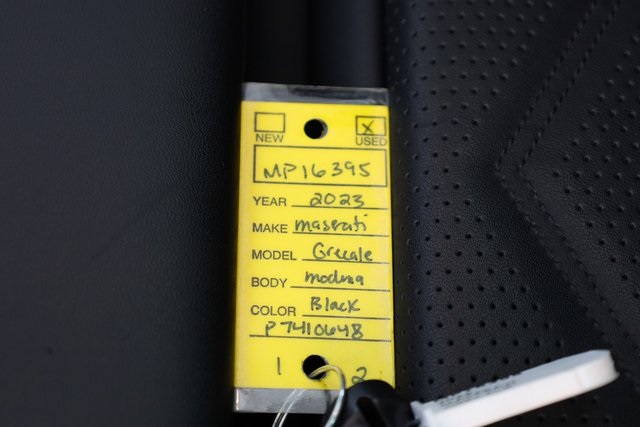 X
NEW USED
MP16395
YEAR 2023
MAKE maserati
MODEL Grecale
BODY modena
COLOR Black
P7410648
1 2